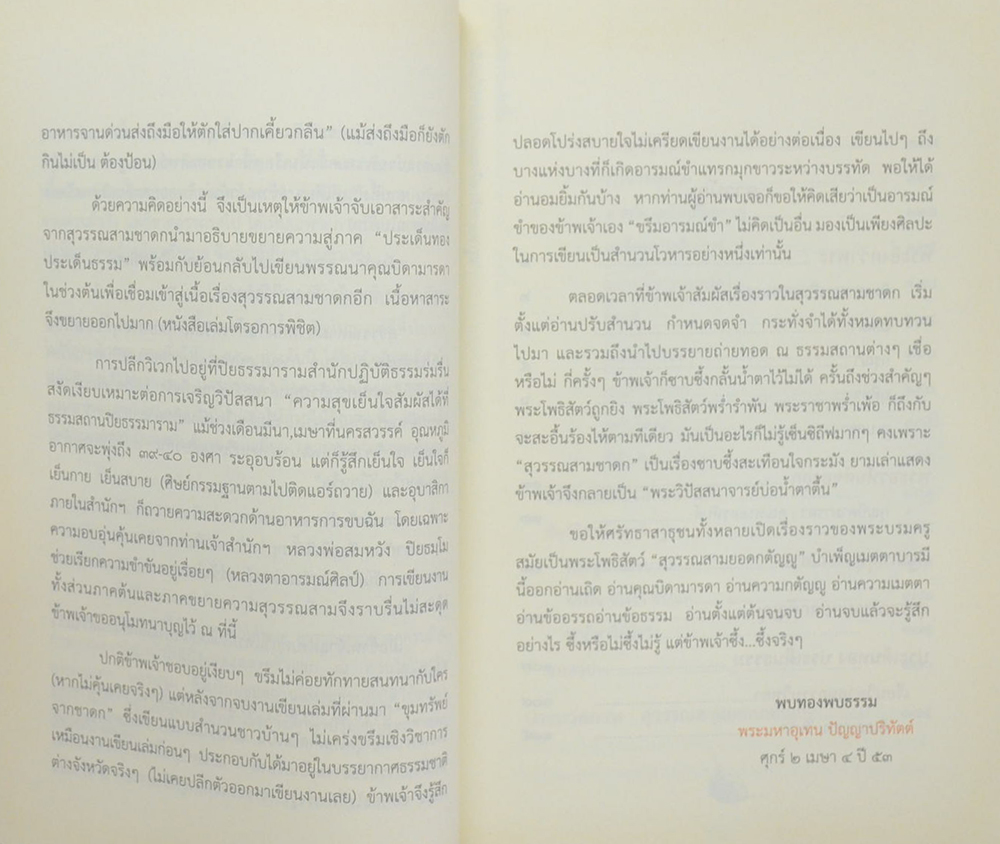 อาหารจานด่วนส่งถึงมือให้ตักใส่ปากเคี้ยวกลืน” (แม้ส่งถึงมือก็ยังตัก
กินไม่เป็น ต้องป้อน)
ด้วยความคิดอย่างนี้ จึงเป็นเหตุให้ข้าพเจ้าจับเอาสาระสำคัญ
จากสุวรรณสามชาดกนำมาอธิบายขยายความสู่ภาค “ประเด็นทอง
ประเด็นธรรม” พร้อมกับย้อนกลับไปเขียนพรรณนาคุณบิดามารดา
ในช่วงต้นเพื่อเชื่อมเข้าสู่เนื้อเรื่องสุวรรณสามชาดกอีก เนื้อหาสาระ
จึงขยายออกไปมาก (หนังสือเล่มโตรอการพิชิต)
การปลีกวิเวกไปอยู่ที่ปิยธรรมารามสำนักปฏิบัติธรรมร่มรื่น
สงัดเงียบเหมาะต่อการเจริญวิปัสสนา “ความสุขเย็นใจสัมผัสได้ที่
ธรรมสถานปิยธรรมาราม” แม้ช่วงเดือนมีนา,เมษาที่นครสวรรค์ อุณหภูมิ
อากาศจะพุ่งถึง ๓๙-๔๐ องศา ระอุอบร้อน แต่ก็รู้สึกเย็นใจ เย็นใจก็
เย็นกาย เย็นสบาย (ศิษย์กรรมฐานตามไปติดแอร์ถวาย) และอุบาสิกา
ภายในสำนักฯ ก็ถวายความสะดวกด้านอาหารการขบฉัน โดยเฉพาะ
ความอบอุ่นคุ้นเคยจากท่านเจ้าสำนักฯ หลวงพ่อสมหวัง ปิยธมฺโม
ช่วยเรียกความขำขันอยู่เรื่อยๆ (หลวงตาอารมณ์ศิลป์) การเขียนงาน
ทั้งส่วนภาคต้นและภาคขยายความสุวรรณสามจึงราบรื่นไม่สะดุด
ข้าพเจ้าขออนุโมทนาบุญไว้ ณ ที่นี้
ปกติข้าพเจ้าชอบอยู่เงียบๆ ขรึมไม่ค่อยทักทายสนทนากับใคร
(หากไม่คุ้นเคยจริงๆ) แต่หลังจากจบงานเขียนเล่มที่ผ่านมา “ขุมทรัพย์
จากชาดก” ซึ่งเขียนแบบสำนวนชาวบ้านๆ ไม่เคร่งขรึมเชิงวิชาการ
เหมือนงานเขียนเล่มก่อนๆ ประกอบกับได้มาอยู่ในบรรยากาศธรรมชาติ
ต่างจังหวัดจริงๆ (ไม่เคยปลีกตัวออกมาเขียนงานเลย) ข้าพเจ้าจึงรู้สึก
ปลอดโปร่งสบายใจไม่เครียดเขียนงานได้อย่างต่อเนื่อง เขียนไปๆ ถึง
บางแห่งบางที่ก็เกิดอารมณ์ขำแทรกมุกขาวระหว่างบรรทัด พอให้ได้
อ่านอมยิ้มกันบ้าง หากท่านผู้อ่านพบเจอก็ขอให้คิดเสียว่าเป็นอารมณ์
ขำของข้าพเจ้าเอง “ขรึมอารมณ์ขำ” ไม่คิดเป็นอื่น มองเป็นเพียงศิลปะ
ในการเขียนเป็นสำนวนโวหารอย่างหนึ่งเท่านั้น
ตลอดเวลาที่ข้าพเจ้าสัมผัสเรื่องราวในสุวรรณสามชาดก เริ่ม
ตั้งแต่อ่านปรับสำนวน กำหนดจดจำ กระทั่งจำได้ทั้งหมดทบทวน
ไปมา และรวมถึงนำไปบรรยายถ่ายทอด ณ ธรรมสถานต่างๆ เชื่อ
หรือไม่ กี่ครั้งๆ ข้าพเจ้าก็ซาบซึ้งกลั้นน้ำตาไว้ไม่ได้ ครั้นถึงช่วงสำคัญๆ
พระโพธิสัตว์ถูกยิง พระโพธิสัตว์พร่ำรำพัน พระราชาพร่ำเพ้อ ก็ถึงกับ
จะสะอื้นร้องไห้ตามทีเดียว มันเป็นอะไรก็ไม่รู้เซ็นซิถีฟมากๆ คงเพราะ
“สุวรรณสามชาดก” เป็นเรื่องซาบซึ้งสะเทือนใจกระมัง ยามเล่าแสดง
ข้าพเจ้าจึงกลายเป็น “พระวิปัสสนาจารย์บ่อน้ำตาตื้น”
ขอให้ศรัทธาสาธุชนทั้งหลายเปิดเรื่องราวของพระบรมครู
สมัยเป็นพระโพธิสัตว์ “สุวรรณสามยอดกตัญญู” บำเพ็ญเมตตาบารมี
นี้ออกอ่านเถิด อ่านคุณบิดามารดา อ่านความกตัญญู อ่านความเมตตา
อ่านข้ออรรถอ่านข้อธรรม อ่านตั้งแต่ต้นจนจบ อ่านจบแล้วจะรู้สึก
อย่างไร ซึ้งหรือไม่ซึ้งไม่รู้ แต่ข้าพเจ้าซึ้ง...ซึ้งจริงๆ
พบทองพบธรรม
พระมหาอุเทน ปัญญาปริทัตต์
ศุกร์ ๒ เมษา ๔ ปี ๕๓